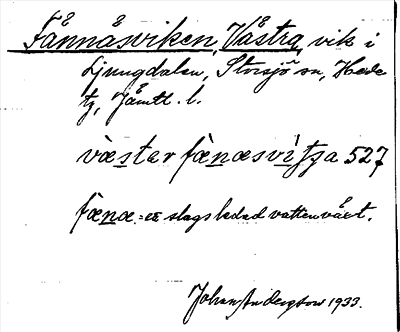 Fännåsviken, Västra, vik i
Ljungdalen, Storsjö sn, Hede
tg, Jämtl. l.
væstar fænæsvitsa 527
fænæ = ett slags ledad vattenväxt.
Johan Anderzson 1933.